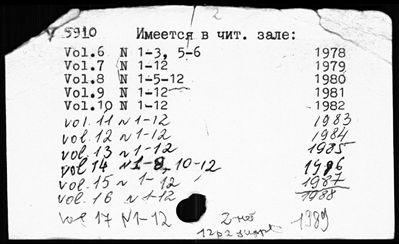 2
5910 Имеется в чит. зале:
Vol.6 N 1-3, 5-6 1978
Vol.7 N 1-12 1979
Vol.8 N 1-5-12 1980
Vol.9 N 1-12 1981
Vol.10 N 1-12 1982
vol. 11 N 1-12 1983
vol. 12 N 1-12 1984
vol. 13 N 1-12 1985
vol 14 N 1-8, 10-12 1986
vol. 15 N 1-12 1987
vol. 16 N 1-12 1988
vol 17 N 1-12 1989